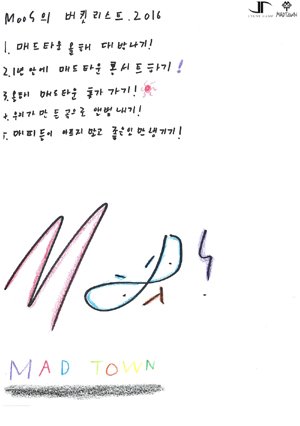 MooS의 버킷리스트. 2016
J. TUNE CAMP
MADTOWN
1. 매드타운 올해 대박나기!
2. 1년 안에 매드타운 콘서트 하기!
3. 올해 매드타운 휴가 가기!
4. 우리가 만든 곡으로 앨범 내기!
5. 매피들이 아프지 말고 좋은일만 생기기!
MAD TOWN